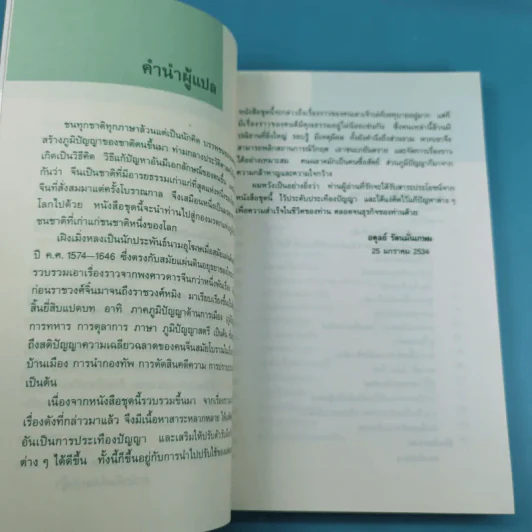 คำนำผู้แปล
ชนทุกชาติทุกภาษาล้วนแต่เป็นนักคิด
สร้างภูมิปัญญาของชาติตนขึ้นมา
เกิดเป็นวิธีคิด วิธีแก้ปัญหาอันมีเอกลักษณ์ของตน
กันว่า จีนเป็นชาติที่มีอารยธรรมเก่าแก่ที่สุด
จีนที่สั่งสมมาแต่ครั้งโบราณกาล จึงเสมือนหนึ่งเป็น
โลกไปด้วย หนังสือชุดนี้จะนำท่านไปสู่
ชนชาติที่เก่าแก่ชนชาติหนึ่งของโลก
เฝิงเมิ่งหลงเป็นนักประพันธ์นามอุโฆษ
ปี ค.ศ. 1574–1646 ซึ่งตรงกับสมัยแผ่นดิน
รวบรวมเอาเรื่องราวจากพงศาวดารจีนกว่าหนึ่งพัน
ก่อนราชวงศ์จิ๋นมาจนถึงราชวงศ์หมิง มาเรียบเรียงขึ้น
สิ้นยี่สิบแปดบท อาทิ ภาคภูมิปัญญาด้านการเมือง
การทหาร การตุลาการ ภาษา ภูมิปัญญาสตรี เป็นต้น
ถึงสติปัญญาความเฉลียวฉลาดของคนจีนสมัยโบราณ
บ้านเมือง การนำกองทัพ การตัดสินคดีความ
เป็นต้น
เนื่องจากหนังสือชุดนี้รวบรวมขึ้นมา จาก
เรื่องดังที่กล่าวมาแล้ว จึงมีเนื้อหาสาระหลากหลาย
อันเป็นการประเทืองปัญญา และเสริมให้ปรับตัว
ต่าง ๆ ได้ดีขึ้น ทั้งนี้ก็ขึ้นอยู่กับการนำไปปรับใช้ของ
หนังสือชุดนี้จะกล่าวถึงเรื่องราวของคนเลว แต่ก็
มีเรื่องราวของคนดีมีคุณธรรมอยู่ไม่น้อยเช่นกัน ซึ่งคนเหล่านี้ล้วนมี
ปณิธานที่ยิ่งใหญ่ รอบรู้ มีเหตุมีผล
สามารถพลิกสถานการณ์วิกฤต เอาชนะภยันตราย และจัดการเรื่องราว
ได้อย่างเหมาะสม คนฉลาดมักเป็นคนซื่อสัตย์ ส่วนภูมิปัญญาก็มาจาก
ความกล้าหาญและความใจกว้าง
ผมหวังเป็นอย่างยิ่งว่า ท่านผู้อ่านที่รักจะได้รับสาระประโยชน์จาก
หนังสือชุดนี้ ไว้ประดับประเทืองปัญญา และได้แง่คิดไว้แก้ปัญหาต่าง ๆ
เพื่อความสำเร็จในชีวิตของท่าน ตลอดจนธุรกิจของท่านด้วย
อดุลย์ รัตนมั่นเกษม
25 มกราคม 2534